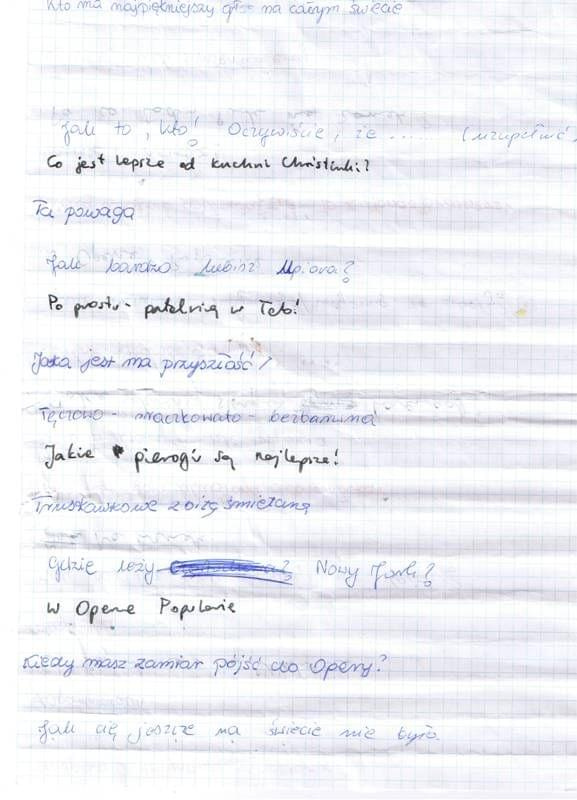 Kto ma najpiękniejszy głos na całym świecie
Jak to, kto? Oczywiście, że ..... (uzupełnić)
Co jest lepsze od kuchni Christinki?
Ta powaga
Jak bardzo lubisz Upiora?
Po prostu - patelnią w łeb!
Jaka jest ma przyszłość?
Tęczowo - mraczkowato - bezbarwna
Jakie pierogi są najlepsze!
Truskawkowe z bitą śmietaną
Gdzie leży Nowy Jork?
W Operze Popularie
Kiedy masz zamiar pójść do Opery?
Jak cię jeszcze na świecie nie było.